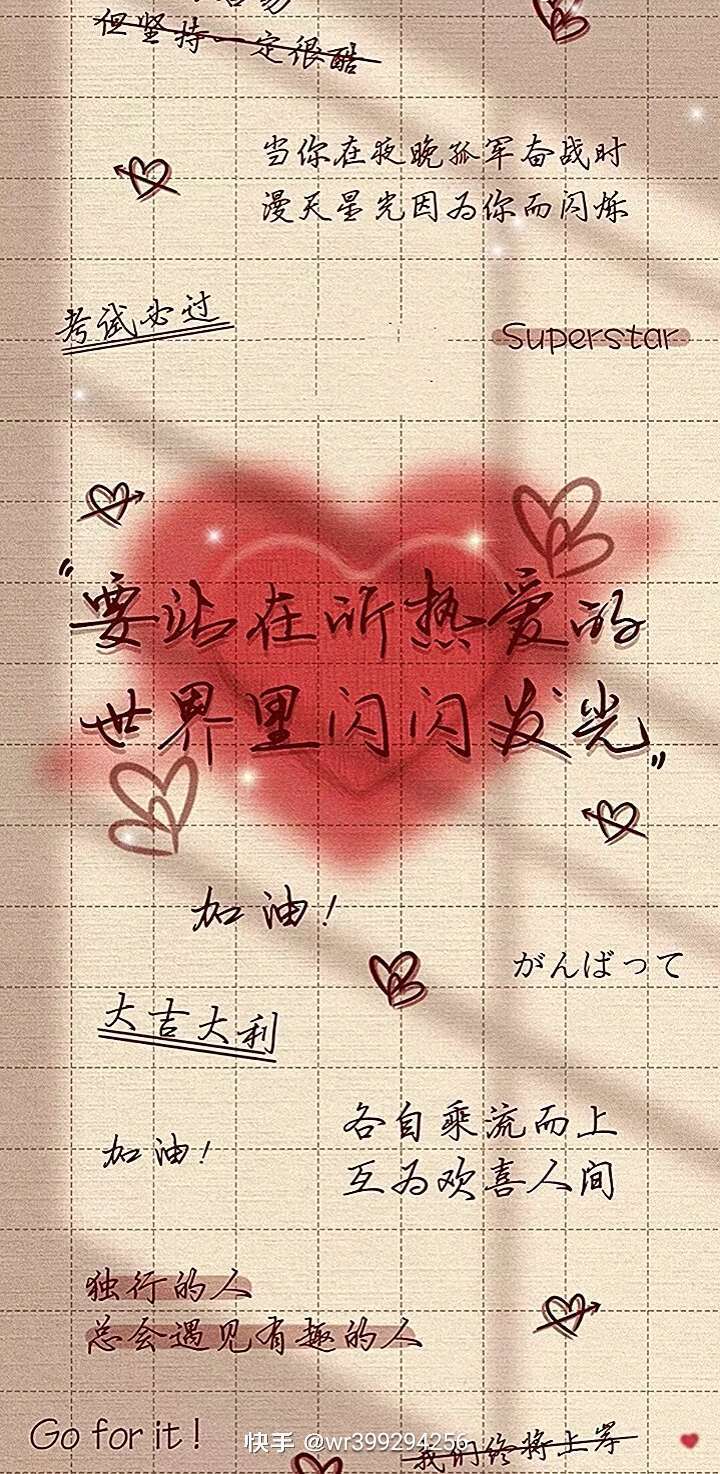 但坚持一定很酷
当你在夜晚孤军奋战时
漫天星光因为你而闪烁
考试必过
Superstar
“要站在所热爱的
世界里闪闪发光”
加油!
がんばって
大吉大利
各自乘流而上
互为欢喜人间
加油!
独行的人
总会遇见有趣的人
Go for it!
快手 @wr399294256
我们终将上岸